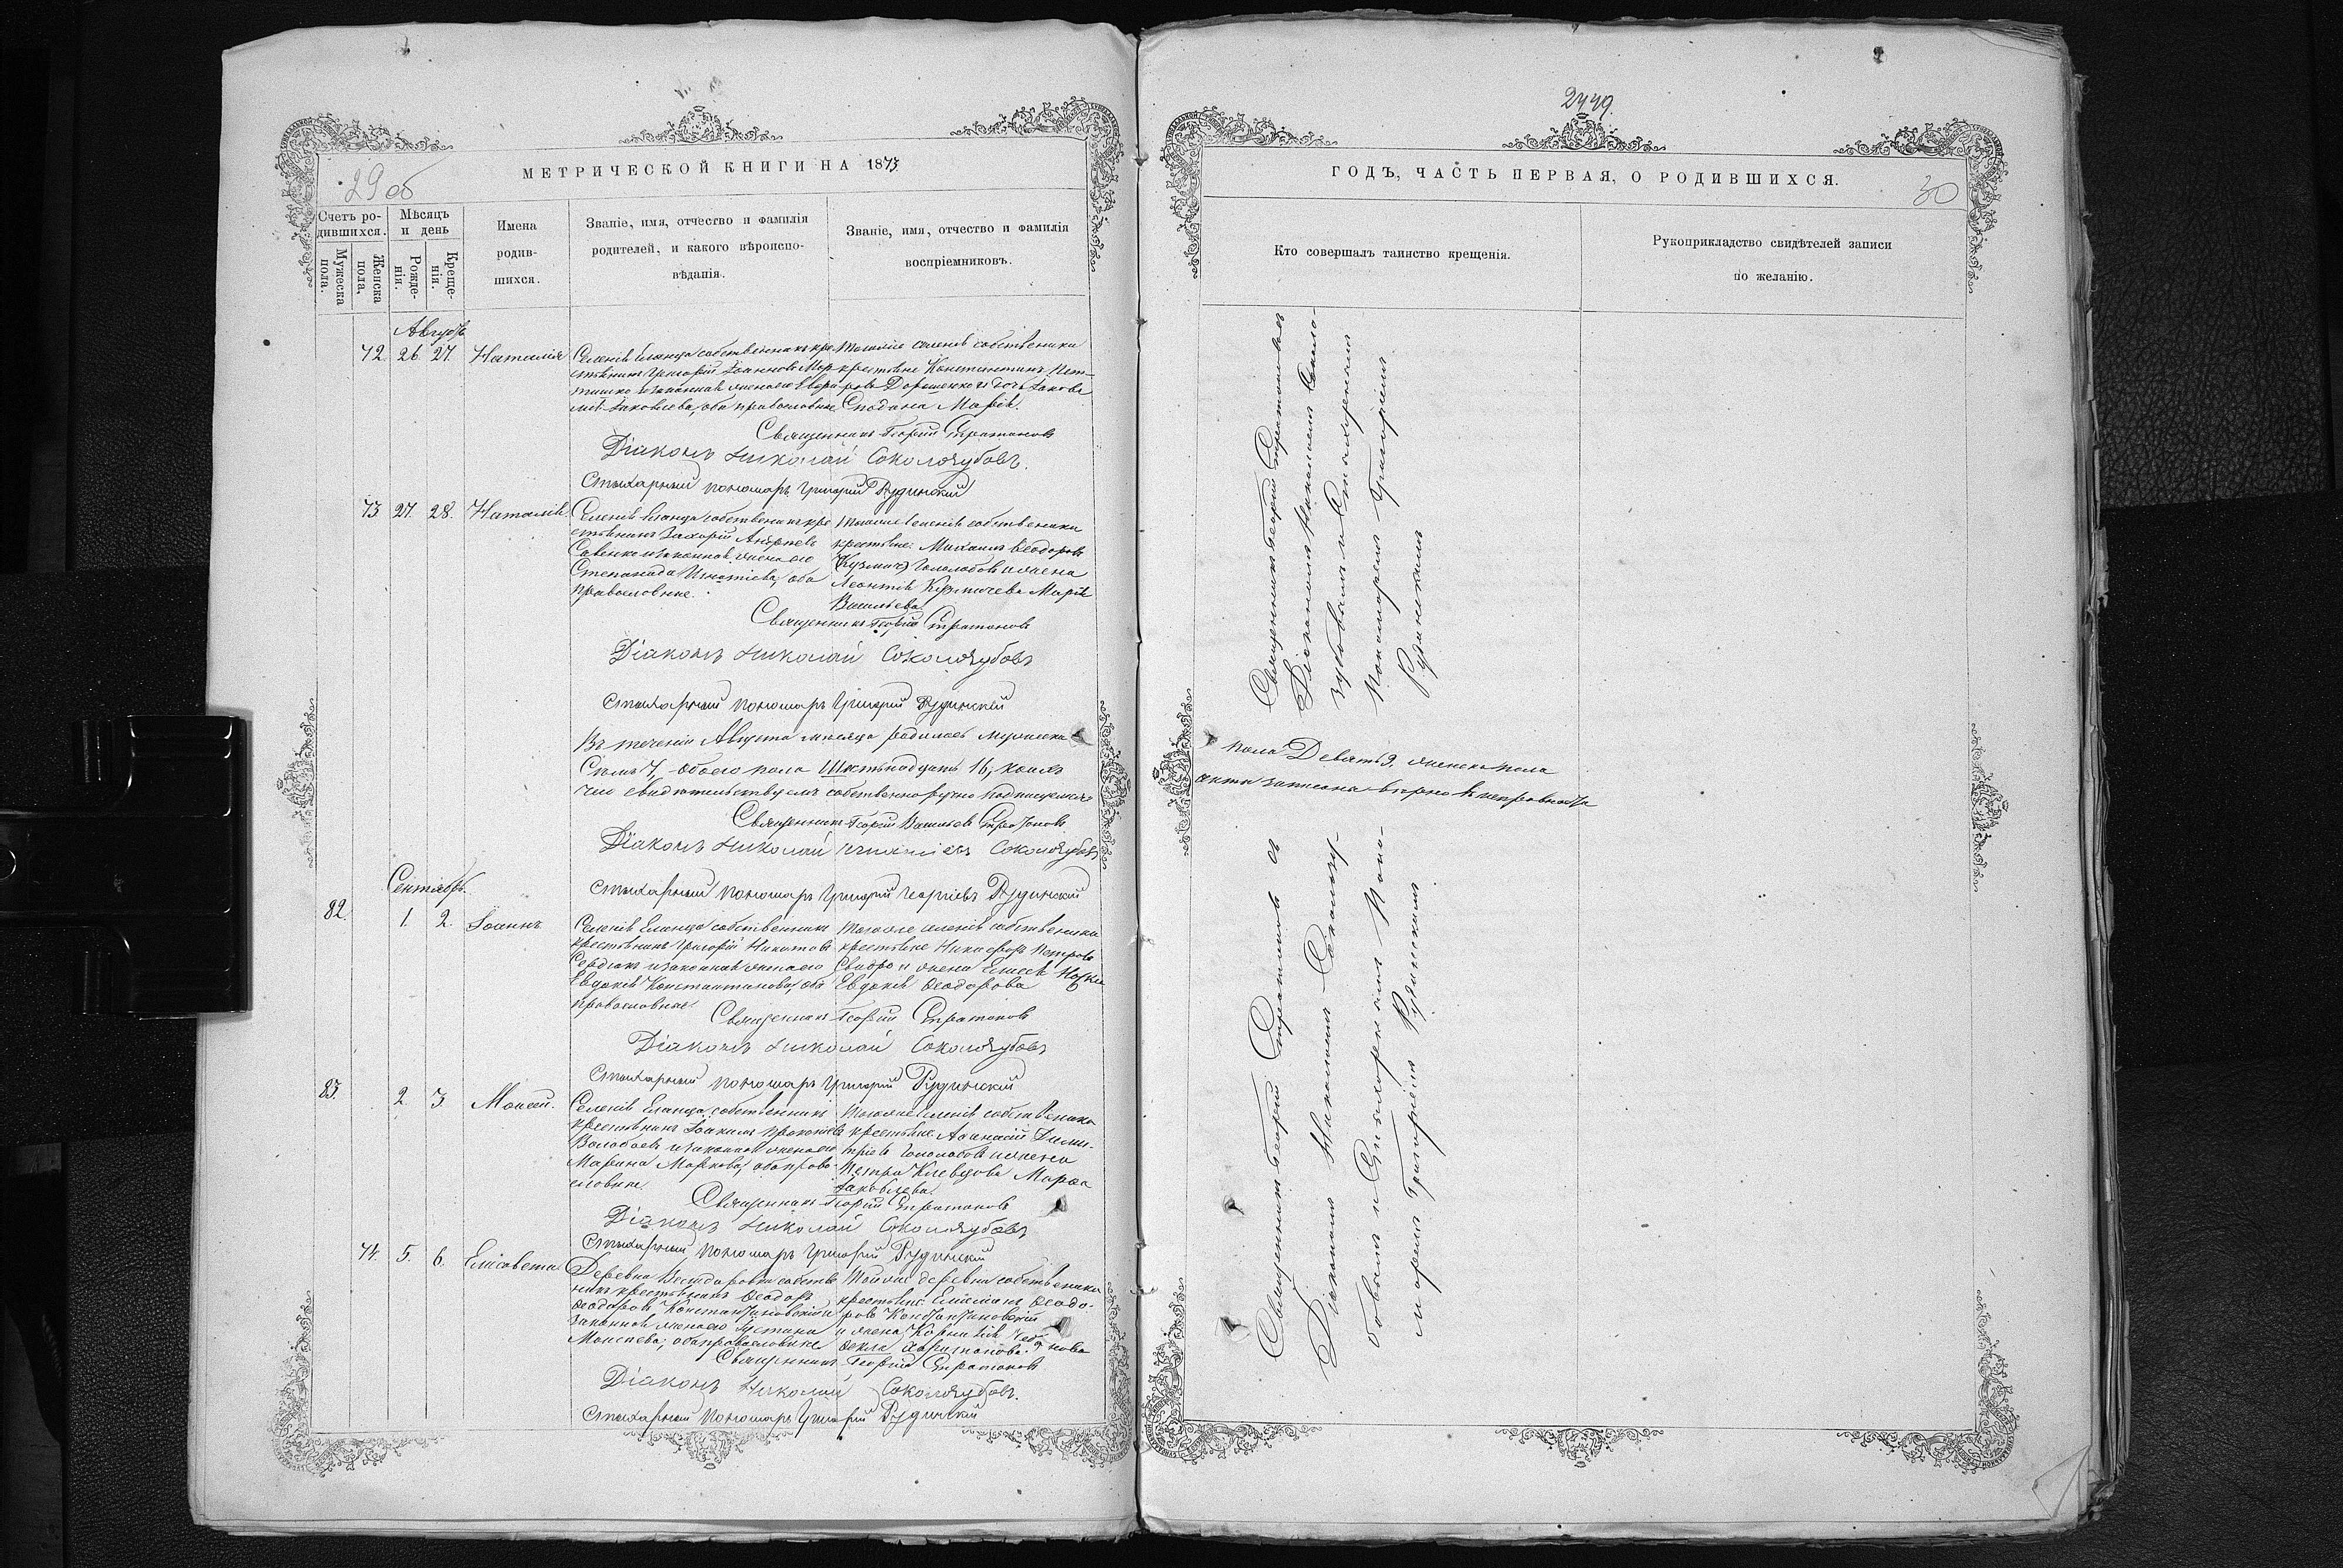 29 об
МЕТРИЧЕСКОЙ КНИГИ НА 1873
Счетъ ро-
дившихся.
Мужеска
пола.
Женска
пола,
Мѣсяцъ
и день
Рожде-
нія.
Креще-
нія.
Имена
родив-
шихся.
Званіе, имя, отчество и фамилія
родителей, и какого вѣроиспо-
вѣданія.
Званіе, имя, отчество и фамилія
воспріемниковъ.
Августъ
72. 26. 27. Наталія
Селенія Еланца собственникъ кре-
стьянинъ Григорій Іоанновъ
и законная жена его
Іаковлева, оба православные
Тогоже селенія собственники
крестьяне Константинъ Пет-
ровъ Дорошенко и дочь Іакова
Сподина Марія.
Священникъ Георгій Стратоновъ
Діаконъ Николай Соколозубовъ.
Стихарный пономарь Григорій Рудинскій
73 27. 28. Наталія
Селенія Еланца собственникъ кре-
стьянинъ Захарій Андреевъ
Савенко и законная жена его
Степанида Игнатіева, оба
православные.
Тогоже селенія собственники
крестьяне: Михаилъ Ѳеодоровъ
(Кузмичъ) Гололобовъ и жена
Леонтія Кузмичева Марія
Васильева
Священникъ Георгій Стратоновъ
Діаконъ Николай Соколозубовъ
Стихарный пономарь Григорій Рудинскій
Въ теченіи Августа месяца родилось мужеска
Семь 7, обоего пола Шестьнадцать 16, коихъ
чемъ свидѣтельствуемъ собственноручно подписуемся
Священникъ Георгій Васильевъ Стратоновъ
Діаконъ Николай Соколозубовъ
Стихарный пономарь Григорій Георгіевъ Рудинскій
Сентябрь.
82. 1. 2. Іоаннъ
Селенія Еланца собственникъ
крестьянинъ Григорій Никитовъ
Сердюкъ и законная жена его
Евдокія Константинова, оба
православные
Тогоже селенія собственники
крестьяне Никифоръ Петровъ
Свидро и жена
Евдокія Ѳеодорова
Священникъ Георгій Стратоновъ
Діаконъ Николай Соколозубовъ
Стихарный пономарь Григорій Рудинскій
83. 2 3. Моисей.
Селенія Еланца собственникъ
крестьянинъ Іоакимъ Прокопіевъ
и законная жена его
Марина Маркова, оба право-
славные
Тогоже селенія собственники
крестьяне Аѳанасій Дими-
тріевъ Гололобовъ и жена
Петра Клевцова Марѳа
Іаковлева
Священникъ Георгій Стратоновъ
Діаконъ Николай Соколозубовъ
Стихарный пономарь Григорій Рудинскій
74. 5. 6. Елисавета
Деревни собствен-
никъ крестьянинъ Ѳеодоръ
Ѳеодоровъ Константиновскій и
законная жена его Устина
Моисеева, оба православные
Той же деревни собственники
крестьяне: Ѳеодо-
ровъ Константиновскій
и жена
Ѳекла
Священникъ Георгій Стратоновъ
Діаконъ Николай Соколозубовъ.
Стихарный пономарь Григорій Рудинскій
2449
ГОДЪ, ЧАСТЬ ПЕРВАЯ, О РОДИВШИХСЯ.
30
Кто совершалъ таинство крещенія.
Рукоприкладство свидѣтелей записи
по желанію.
Священникъ Георгій Стратоновъ съ
Діакономъ Николаемъ Соколо-
зубовымъ и Стихарнымъ
Пономаремъ Григоріемъ
Рудинскимъ
пола Девять 9. женска пола
акты записаны верно
Священникъ Георгій Стратоновъ съ
Діакономъ Николаемъ Соколозу-
бовымъ и Стихарнымъ Поно-
маремъ Григоріемъ Рудинскимъ